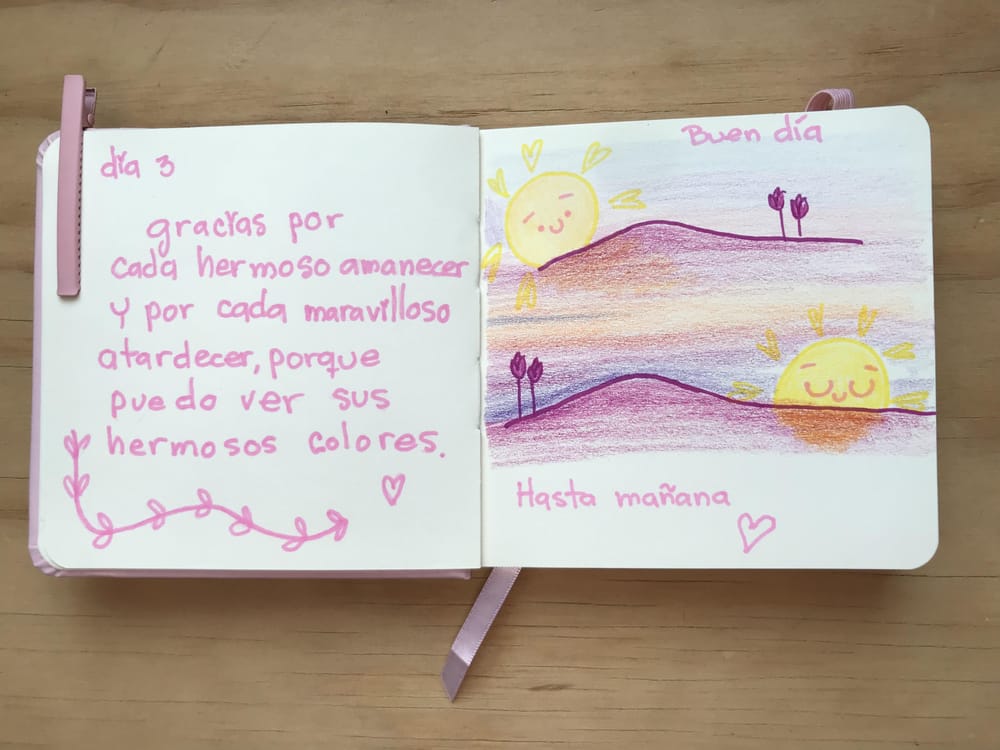 día 3
gracias por
cada hermoso amanecer
y por cada maravilloso
atardecer, porque
puedo ver sus
hermosos colores.
Buen día
Hasta mañana